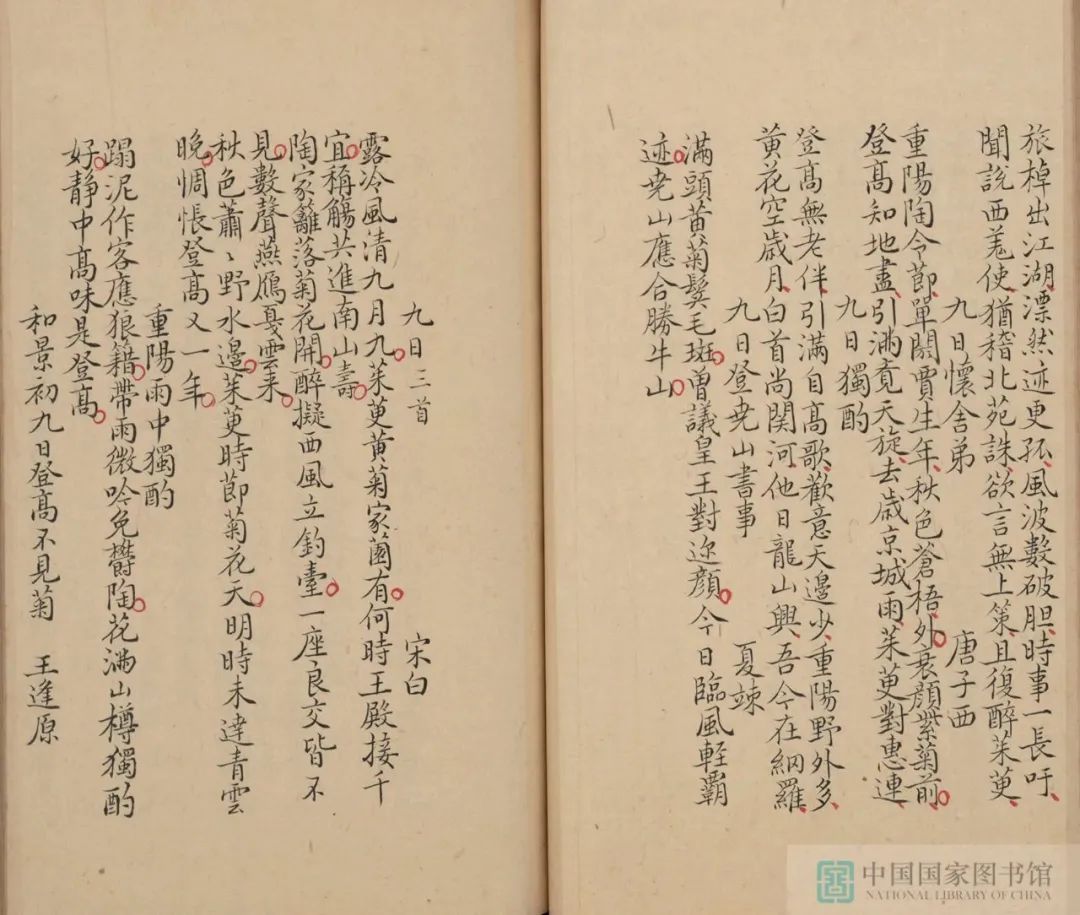 旅棹出江湖漂然迹更孤風波數破胆時事一長吁
聞說西羗使猶稽北苑誅欲言無上策且復醉茱萸
九日懷舍弟 唐子西
重陽陶令節單閼賈生年秋色蒼梧外衰顏紫菊前
登高知地盡引滿覔天旋去歲京城雨茱萸對惠連
九日獨酌
登高無老伴引滿自高歌歡意天邊少重陽野外多
黃花空歲月白首尚関河他日龍山興吾今在網羅
九日登尭山書事 夏竦
滿頭黃菊鬂毛斑曽議皇王對迩顏今日臨風軽覇
迹尭山應合勝牛山
九日三首 宋白
露冷風清九月九茱萸黃菊家園有何時王殿接千
宜稱觴共進南山壽
陶家籬落菊花開醉擬西風立釣臺一座良交皆不
見數聲燕鴈戞雲来
秋色蕭〻野水邊茱萸時節菊花天明時未達青雲
晚惆悵登高又一年
重陽雨中獨酌
蹋泥作客應狼籍帶雨微吟免欝陶花滿山樽獨酌
好靜中高味是登高
和景初九日登高不見菊 王逢原
中国国家图书馆
NATIONAL LIBRARY OF CHINA